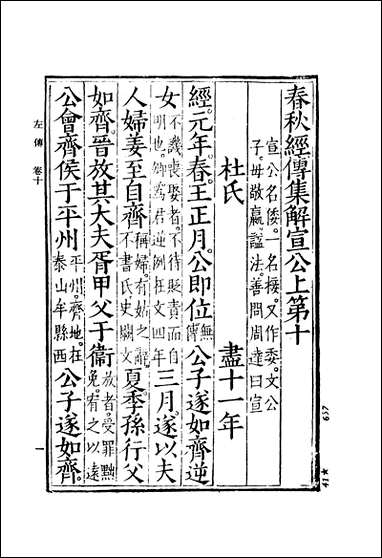 春秋經傳集解宣公上第十
宣公名倭。一名接。又作委。文公
子。母敬嬴。謚法。善問周達曰宣
杜氏 盡十一年
經。元年。春。王正月。公即位。無傳 公子遂如齊逆
女。不譏喪娶者。不待貶責而自明也。卿爲君逆例在文四年 三月。遂以夫
人婦姜至自齊。稱婦。有姑之辭。不書氏。史闕文 夏。季孫行父
如齊。晉放其大夫胥甲父于衞。放者。受罪黜免。宥之以遠
公會齊侯于平州。平州。齊地。在泰山牟縣西 公子遂如齊。
左傳 卷十
一
637
41★